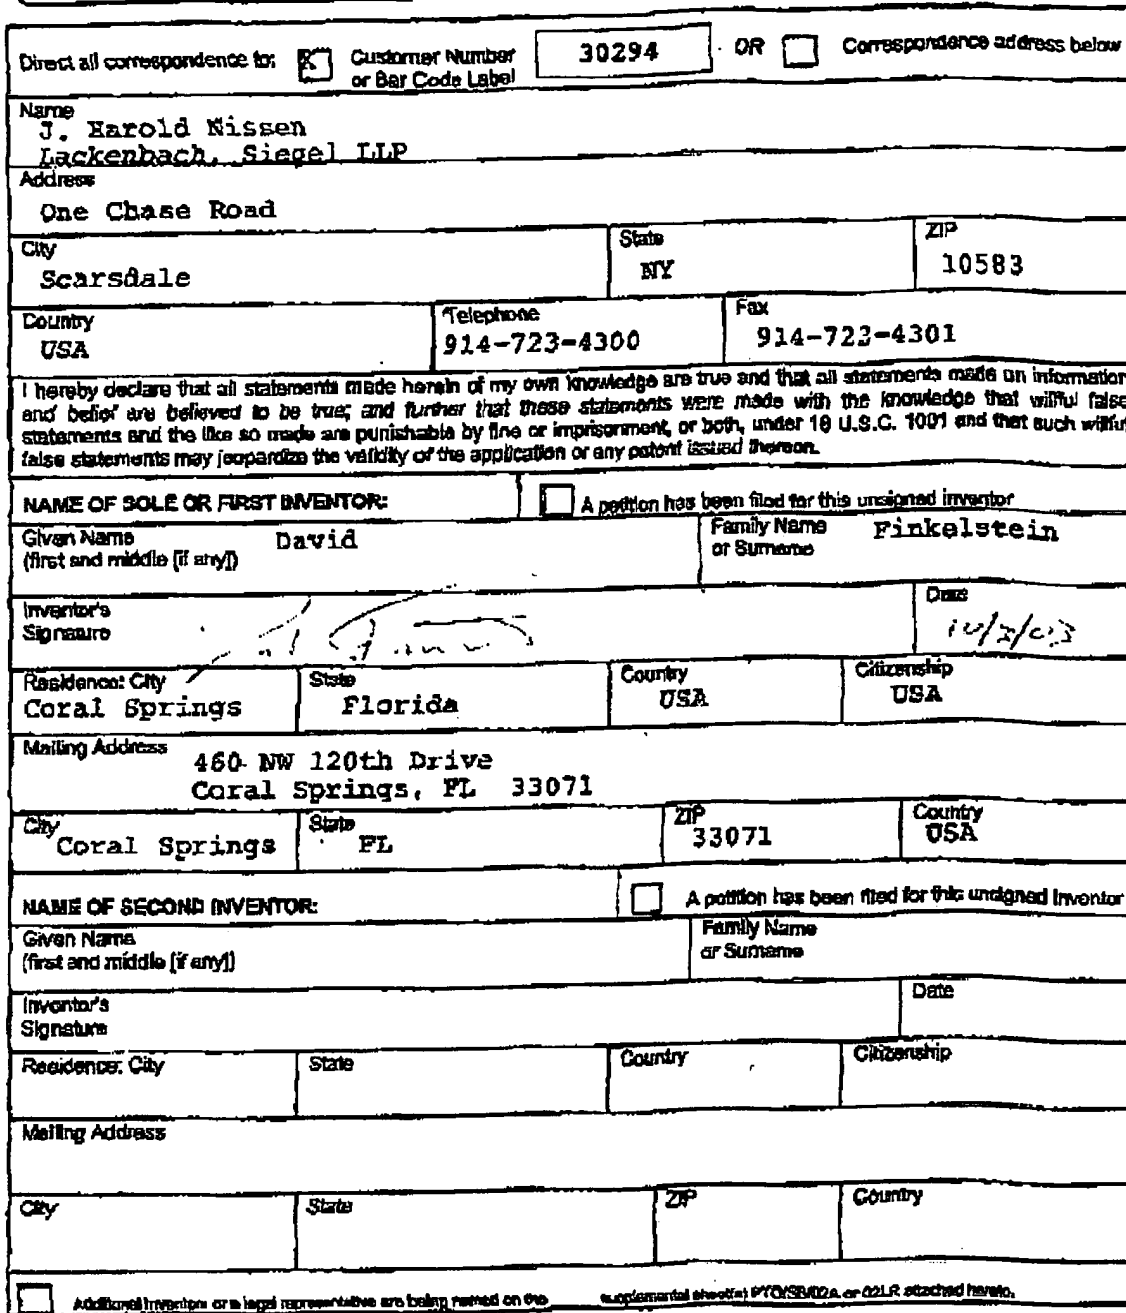 Direct all correspondence to: X Customer Number or Bar Code Label 30294 OR Correspondence address below
Name
J. Harold Nissen
Lackenbach, Siegel LLP
Address
One Chase Road
City State ZIP
Scarsdale NY 10583
Country Telephone Fax
USA 914-723-4300 914-723-4301
I hereby declare that all statements made herein of my own knowledge are true and that all statements made on information
and belief are believed to be true; and further that these statements were made with the knowledge that willful false
statements and the like so made are punishable by fine or imprisonment, or both, under 18 U.S.C. 1001 and that such willful
false statements may jeopardize the validity of the application or any patent issued thereon.
NAME OF SOLE OR FIRST INVENTOR: A petition has been filed for this unsigned inventor
Given Name David Family Name Finkelstein
(first and middle [if any]) or Surname
Inventor's Date
Signature 10/2/03
Residence: City State Country Citizenship
Coral Springs Florida USA USA
Mailing Address 460 NW 120th Drive
Coral Springs, FL 33071
City State ZIP Country
Coral Springs FL 33071 USA
NAME OF SECOND INVENTOR: A petition has been filed for this unsigned inventor
Given Name Family Name
(first and middle [if any]) or Surname
Inventor's Date
Signature
Residence: City State Country Citizenship
Mailing Address
City State ZIP Country
Additional inventors or a legal representative are being named on the supplemental sheet(s) PTO/SB/02A or 02LR attached hereto.